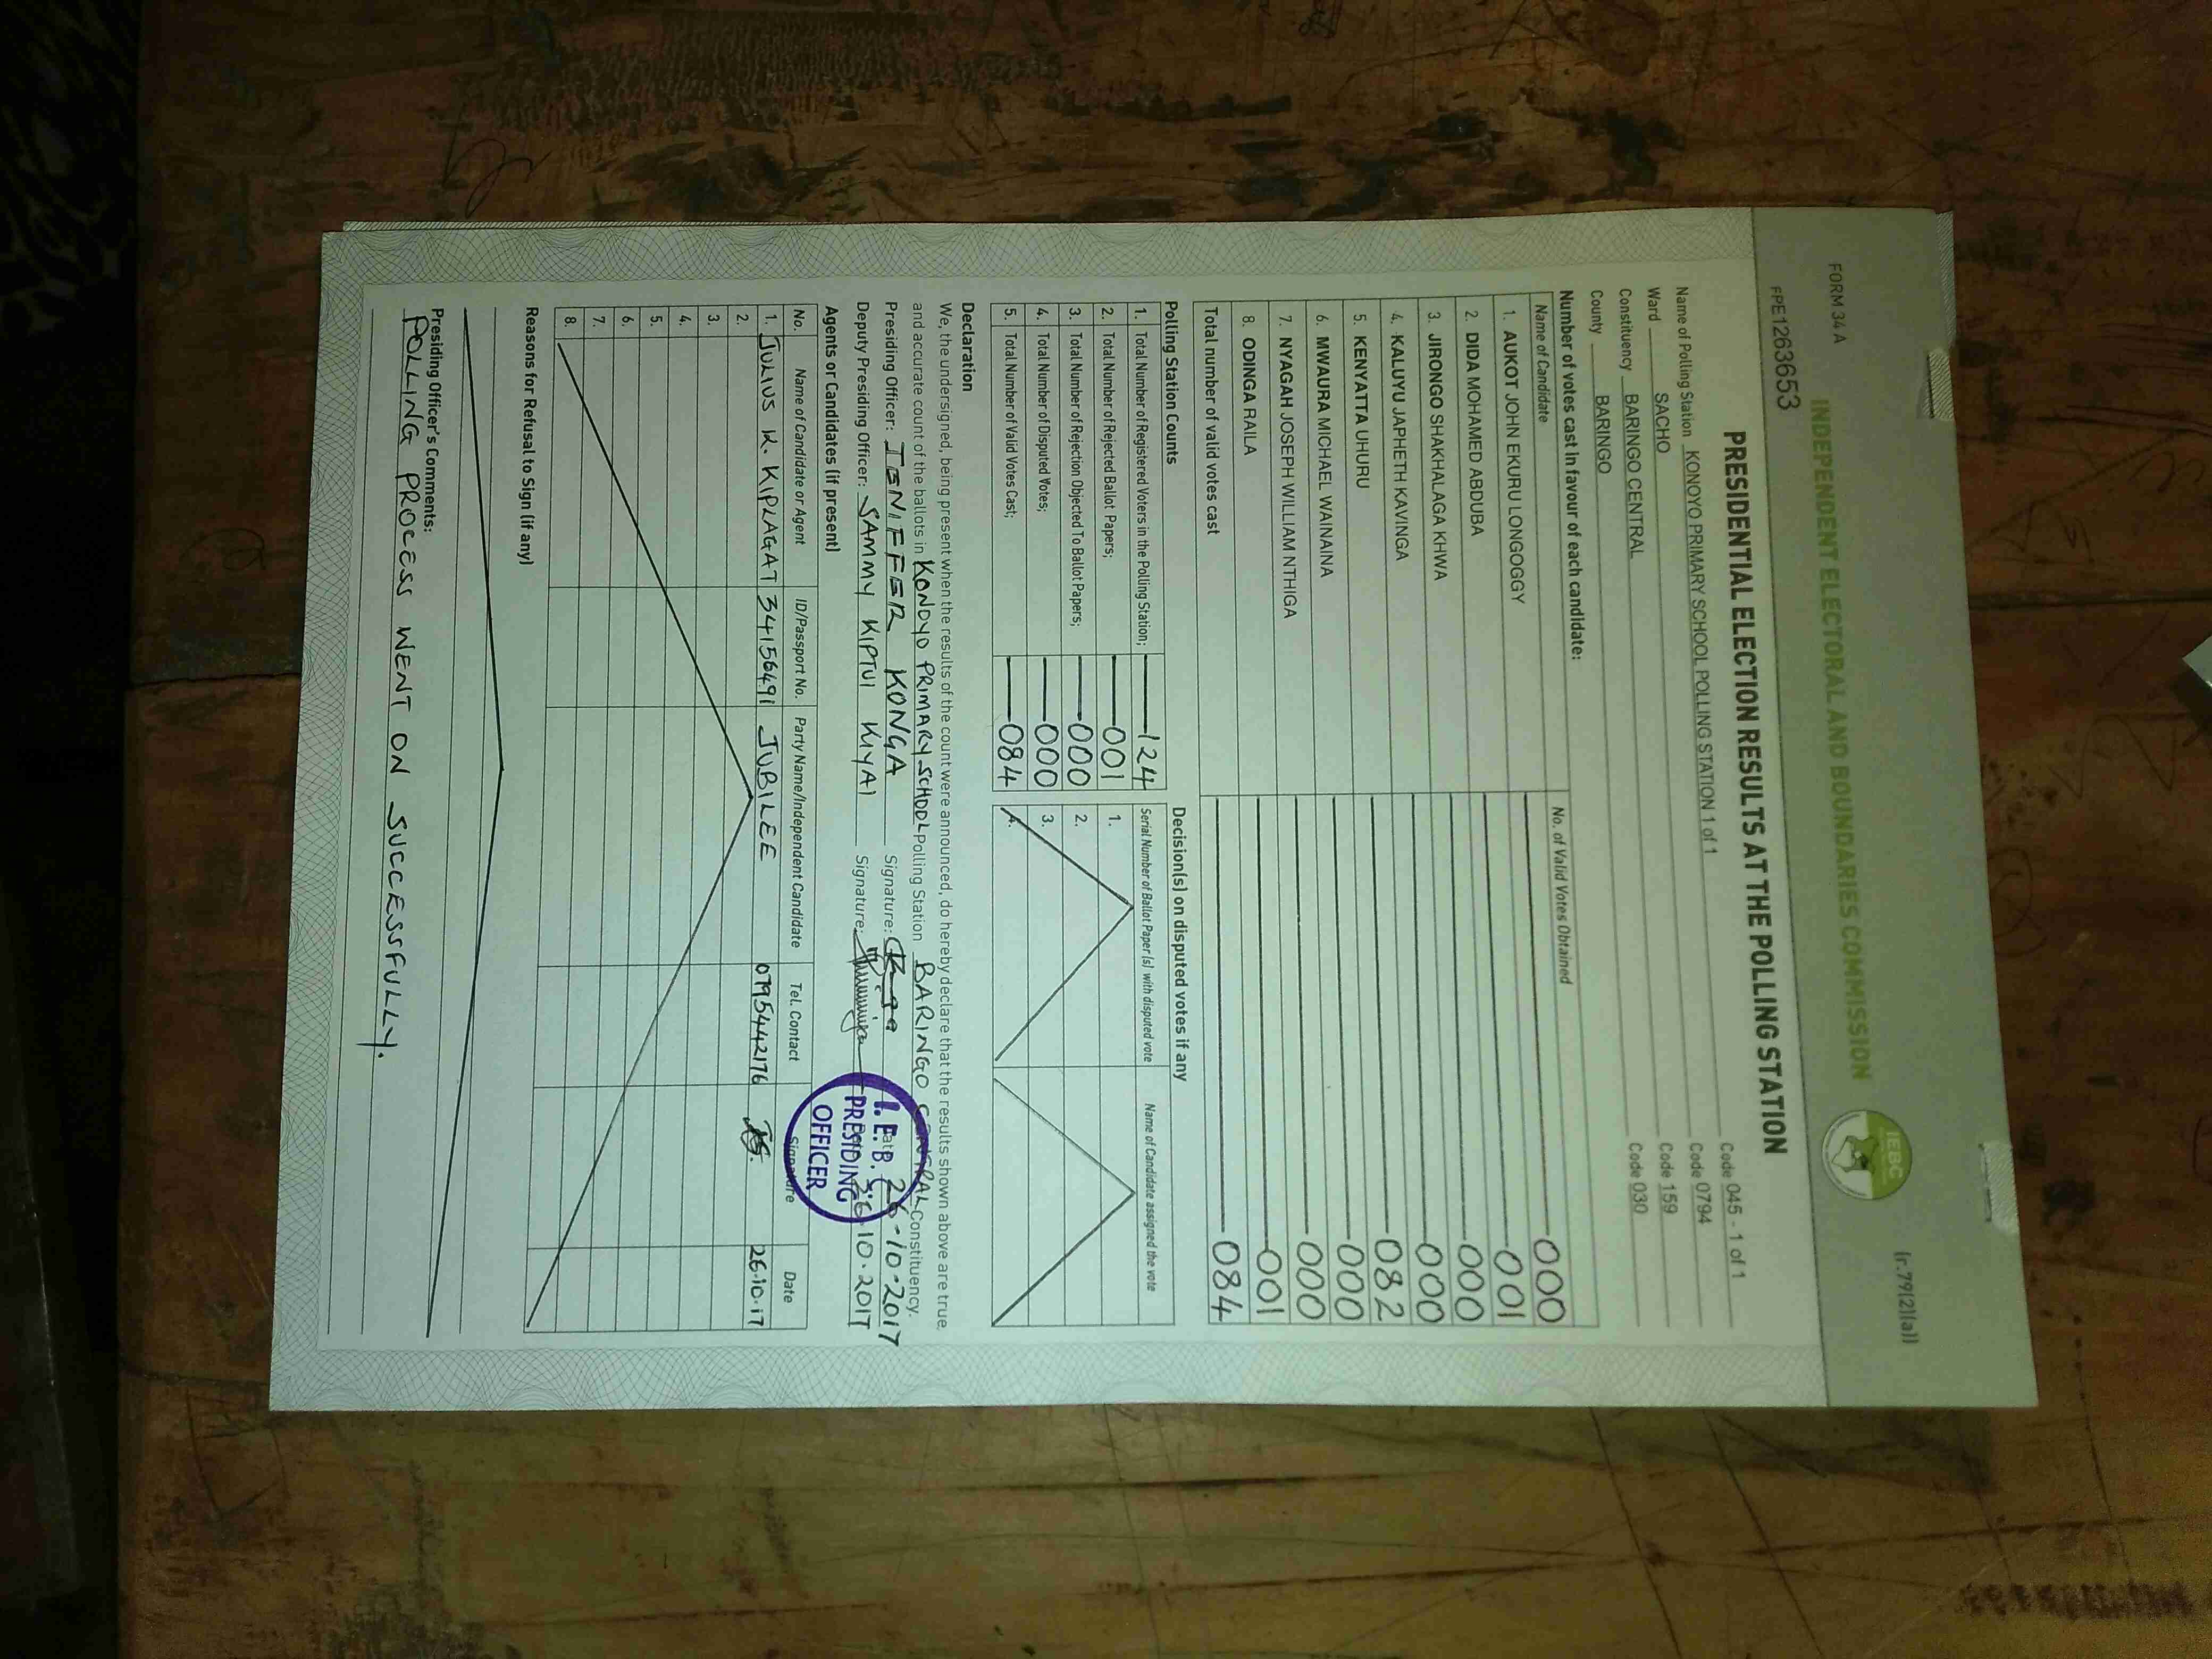 FORM 34 A
(r.79(2)(a))
INDEPENDENT ELECTORAL AND BOUNDARIES COMMISSION
IEBC
FPE1263653
PRESIDENTIAL ELECTION RESULTS AT THE POLLING STATION
Name of Polling Station KONOYO PRIMARY SCHOOL POLLING STATION 1 of 1 Code 045 - 1 of 1
Ward SACHO Code 0794
Constituency BARINGO CENTRAL Code 159
County BARINGO Code 030
Number of votes cast in favour of each candidate:
Name of Candidate No. of Valid Votes Obtained
1. AUKOT JOHN EKURU LONGOGGY 000
2. DIDA MOHAMED ABDUBA 001
3. JIRONGO SHAKHALAGA KHWA 000
4. KALUYU JAPHETH KAVINGA 000
5. KENYATTA UHURU 082
6. MWAURA MICHAEL WAINAINA 000
7. NYAGAH JOSEPH WILLIAM NTHIGA 000
8. ODINGA RAILA 001
Total number of valid votes cast 084
Polling Station Counts
1. Total Number of Registered Voters in the Polling Station; 124
2. Total Number of Rejected Ballot Papers; 001
3. Total Number of Rejection Objected To Ballot Papers; 000
4. Total Number of Disputed Votes; 000
5. Total Number of Valid Votes Cast; 084
Decision(s) on disputed votes if any
Serial Number of Ballot Paper (s) with disputed vote Name of Candidate assigned the vote
1.
2.
3.
4.
Declaration
We, the undersigned, being present when the results of the count were announced, do hereby declare that the results shown above are true
and accurate count of the ballots in KONOYO PRIMARY SCHOOL Polling Station BARINGO CENTRAL Constituency.
Presiding Officer: JENIFFER KONGA Signature: Date: 26-10-2017
Deputy Presiding Officer: SAMMY KIPTUI KIYAI Signature: 26.10.2017
I.E.B.C.
PRESIDING
OFFICER
Agents or Candidates (if present)
No. Name of Candidate or Agent ID/Passport No. Party Name/Independent Candidate Tel. Contact Signature Date
1. JULIUS K. KIPLAGAT 34156491 JUBILEE 0795442176 26.10.17
2.
3.
4.
5.
6.
7.
8.
Reasons for Refusal to Sign (if any)
Presiding Officer's Comments:
POLLING PROCESS WENT ON SUCCESSFULLY.